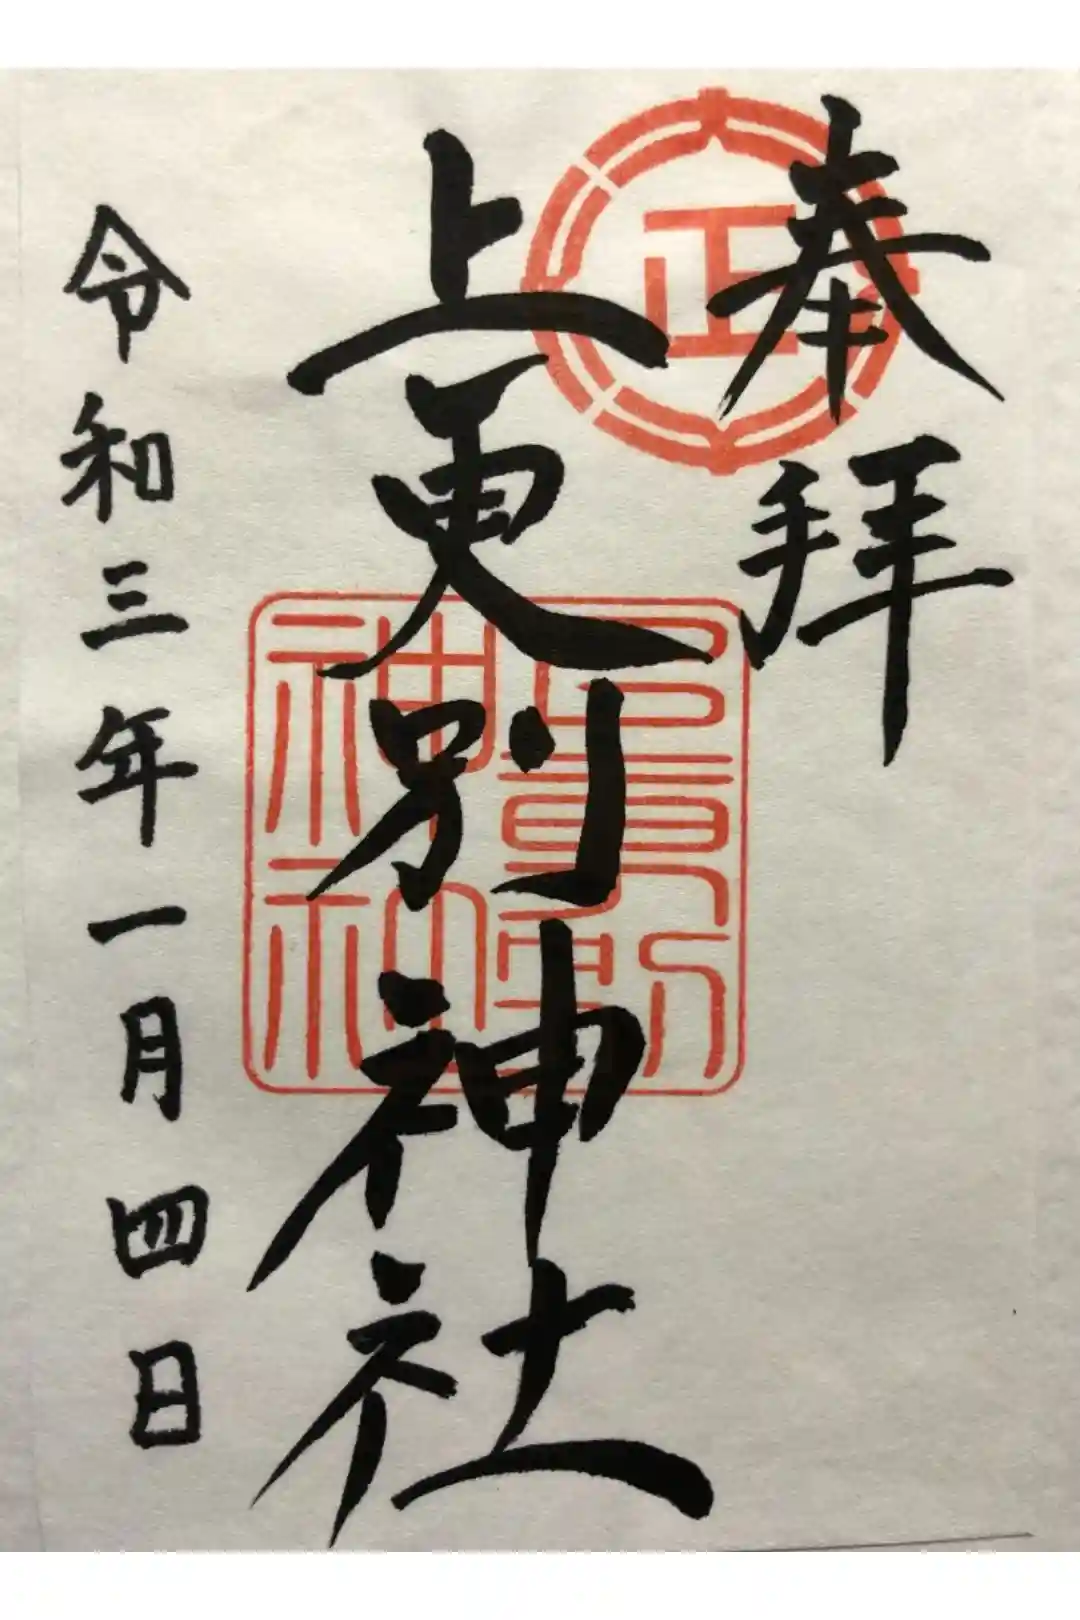 奉拝
正
上更別神社
更別
神社
令和三年一月四日